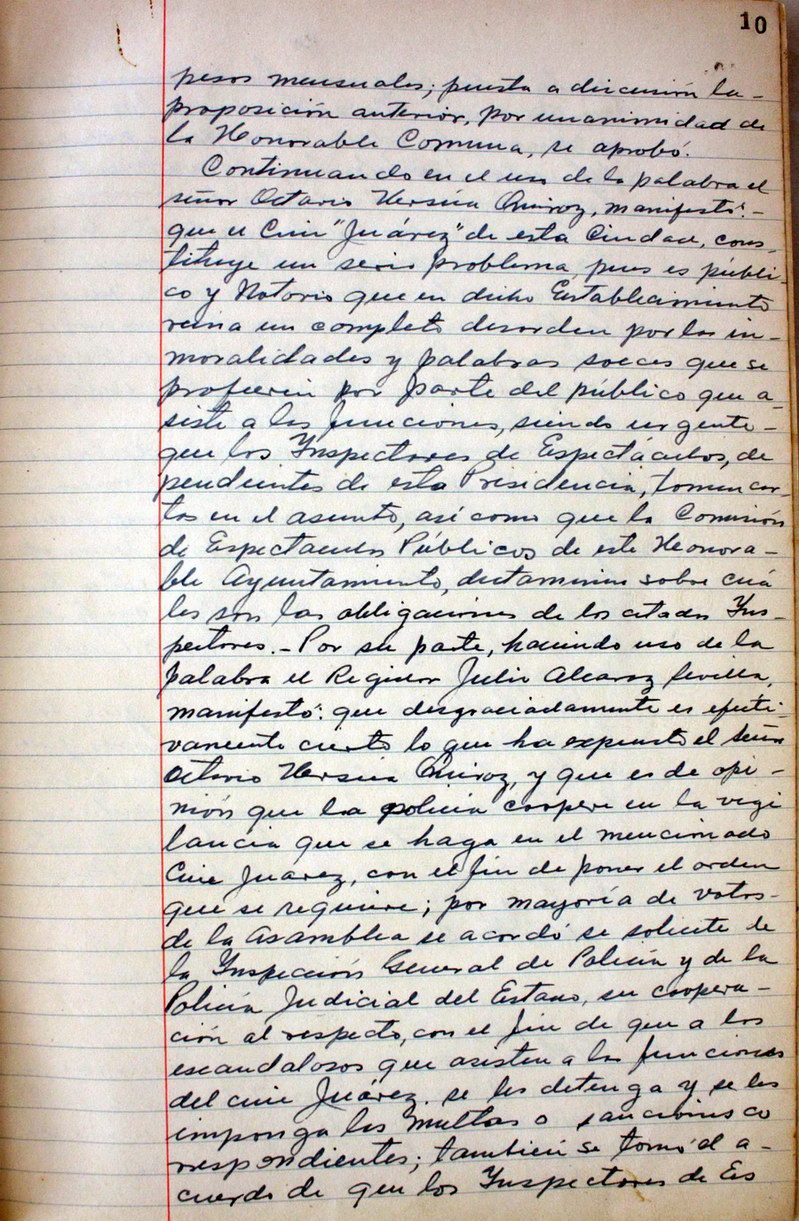 10
pesos mensuales; puesta a discusión la-
proposición anterior, por unanimidad de
la Honorable Comuna, se aprobó.
Continuando en el uso de la palabra el
señor Octavio Hersúa Quiroz, manifestó:-
que el Cine "Juárez" de esta Ciudad, cons-
tituye un serio problema, pues es públi-
co y Notorio que en dicho Establecimiento
reina un completo desorden por las in-
moralidades y palabras soeces que se
profieren por parte del público que a-
siste a las funciones, siendo urgente-
que los Inspectores de Espectáculos, de
pendientes de esta Presidencia, tomen car-
tas en el asunto, así como que la Comisión
de Espectaculos Públicos de este Honora-
ble Ayuntamiento, dictamine sobre cuá
les son las obligaciones de los citados Ins-
pectores.- Por su parte, haciendo uso de la
palabra el Regidor Julio Alcaraz Sevilla,
manifestó: que desgraciadamente es efecti-
vamente cierto lo que ha expuesto el señor
Octavio Hersúa Quiroz, y que es de opi-
nión que la policía coopere en la vigi
lancia que se haga en el mencionado
Cine Juarez, con el fin de poner el orden
que se requiere; por mayoría de votos-
de la Asamblea se acordó se solicite de
la Inspección General de Policía y de la
Policía Judicial del Estado, su coopera-
ción al respecto, con el fin de que a los
escandalosos que asisten a las funciones
del cine Juárez. se les detenga y se les
imponga las Multas o sanciones co
rrespondientes; también se tomó el a-
cuerdo de que los Inspectores de Es